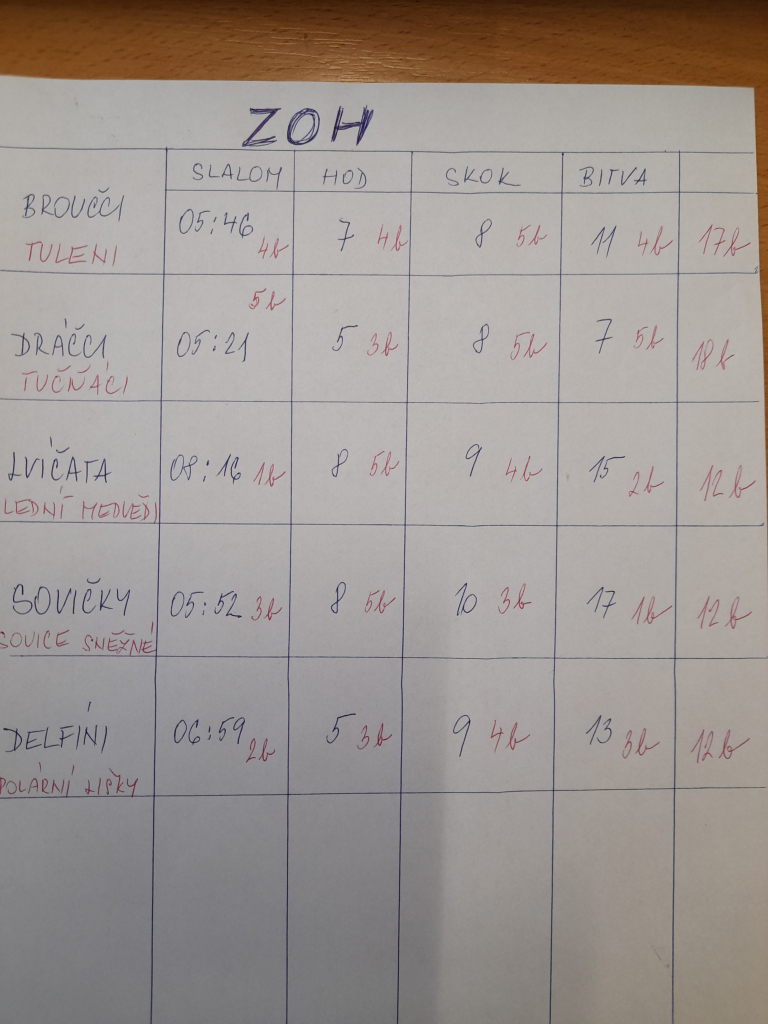 ZOH
SLALOM HOD SKOK BITVA
BROUČCI 05:46 4b 7 4b 8 5b 11 4b 17b
TULENI
5b
DRÁČCI 05:21 5 3b 8 5b 7 5b 18b
TUČŇÁCI
LVÍČATA 08:16 1b 8 5b 9 4b 15 2b 12b
LEDNÍ MEDVĚDI
SOVIČKY 05:52 3b 8 5b 10 3b 17 1b 12b
SOVICE SNĚŽNÉ
DELFÍNI 06:59 2b 5 3b 9 4b 13 3b 12b
POLÁRNÍ LIŠKY